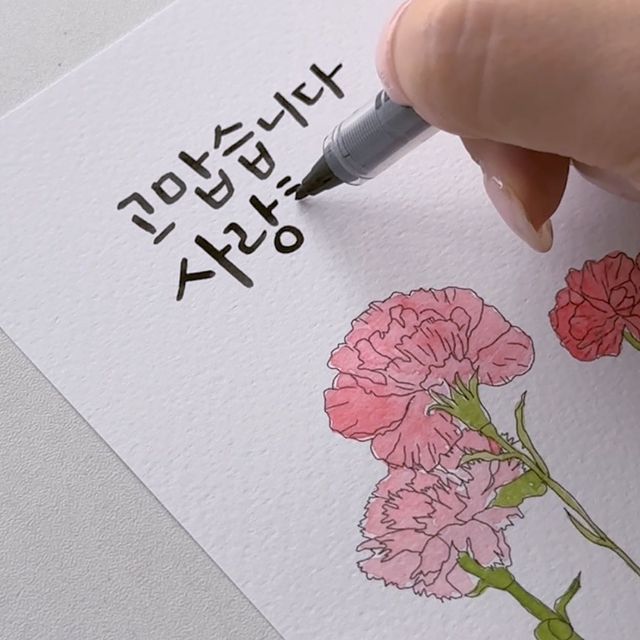 고맙습니다
사랑